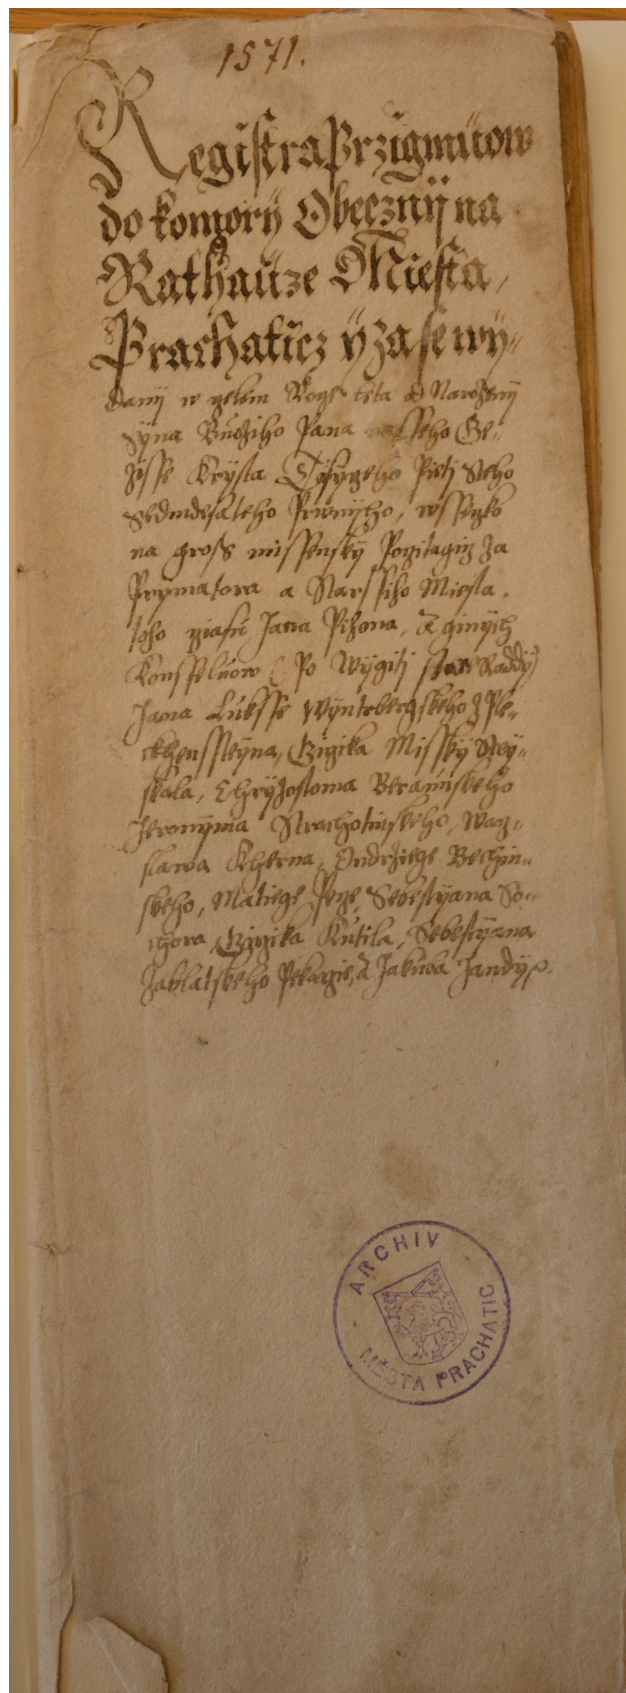 1571.
Registra Przigmuow
do komory Obecznij na
Rathauze Miesta
Prachaticz ÿ zase wÿ„
danij w gelem Roge leta od Narozenij
Sÿna Buoziho Pana nasseho Ge„
zisse Krÿsta Tisÿczeho Pieti Steho
Sedmdesateho Prwnijho, wssiczko
na gross missenskÿ Pocitagicz za
Prymatora a Starssiho Miesta
toho Jana Pizona, A ginÿch
Konsseluow (Po Wygiti Raddÿ)
Jana Luksse Wÿntrbergskeho z Ple„
ckhenssteÿna, Girzika Misskÿ Steÿ„
skala, Chrÿzostoma Beraunskeho
Jeronÿma Strachotinskeho, Wacz„
slawa Kherna, Ondrzege Bechin„
skeho, Matiege Peze, Sebestÿana So„
chora, Girzika Kutila, Sebestÿana
Zablatskeho Pekarzie, A Jakuba Jandÿ
ARCHIV
MĚSTA PRACHATIC